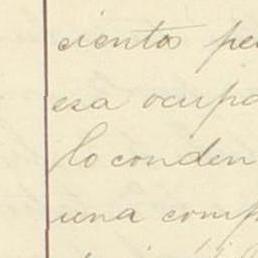 cientos pe
esa ocupa
lo conden
una comp